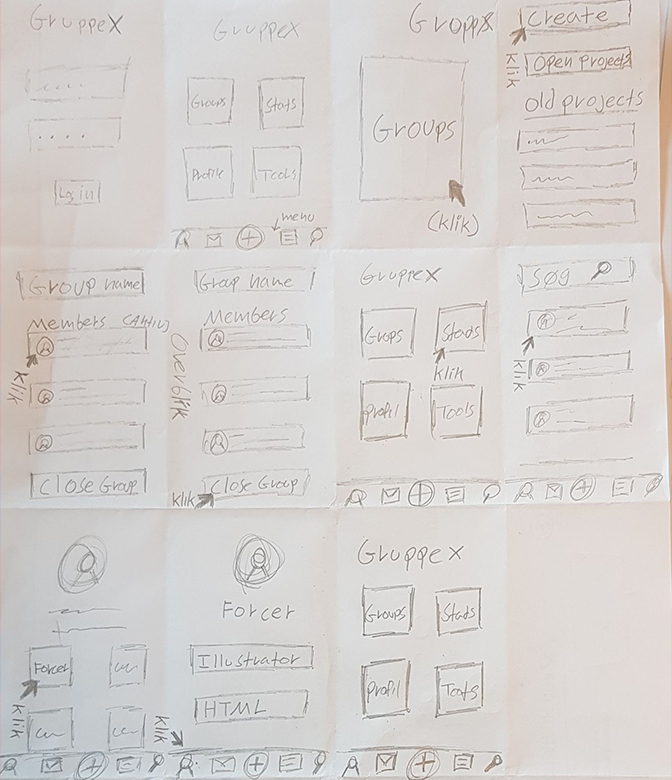 GruppeX
Log in
GruppeX
Groups
Stats
Profile
Tools
menu
GroppX
Groups
(klik)
Create
Klik
Open projects
old projects
Group name
Members
Klik
Close Group
Group name
Members
Overblik
Klik
Close Group
GruppeX
Grops
Stads
klik
Profil
Tools
Søg
Klik
Forcer
Klik
Forcer
Illustrator
HTML
Klik
GruppeX
Groups
Stads
Profil
Toots